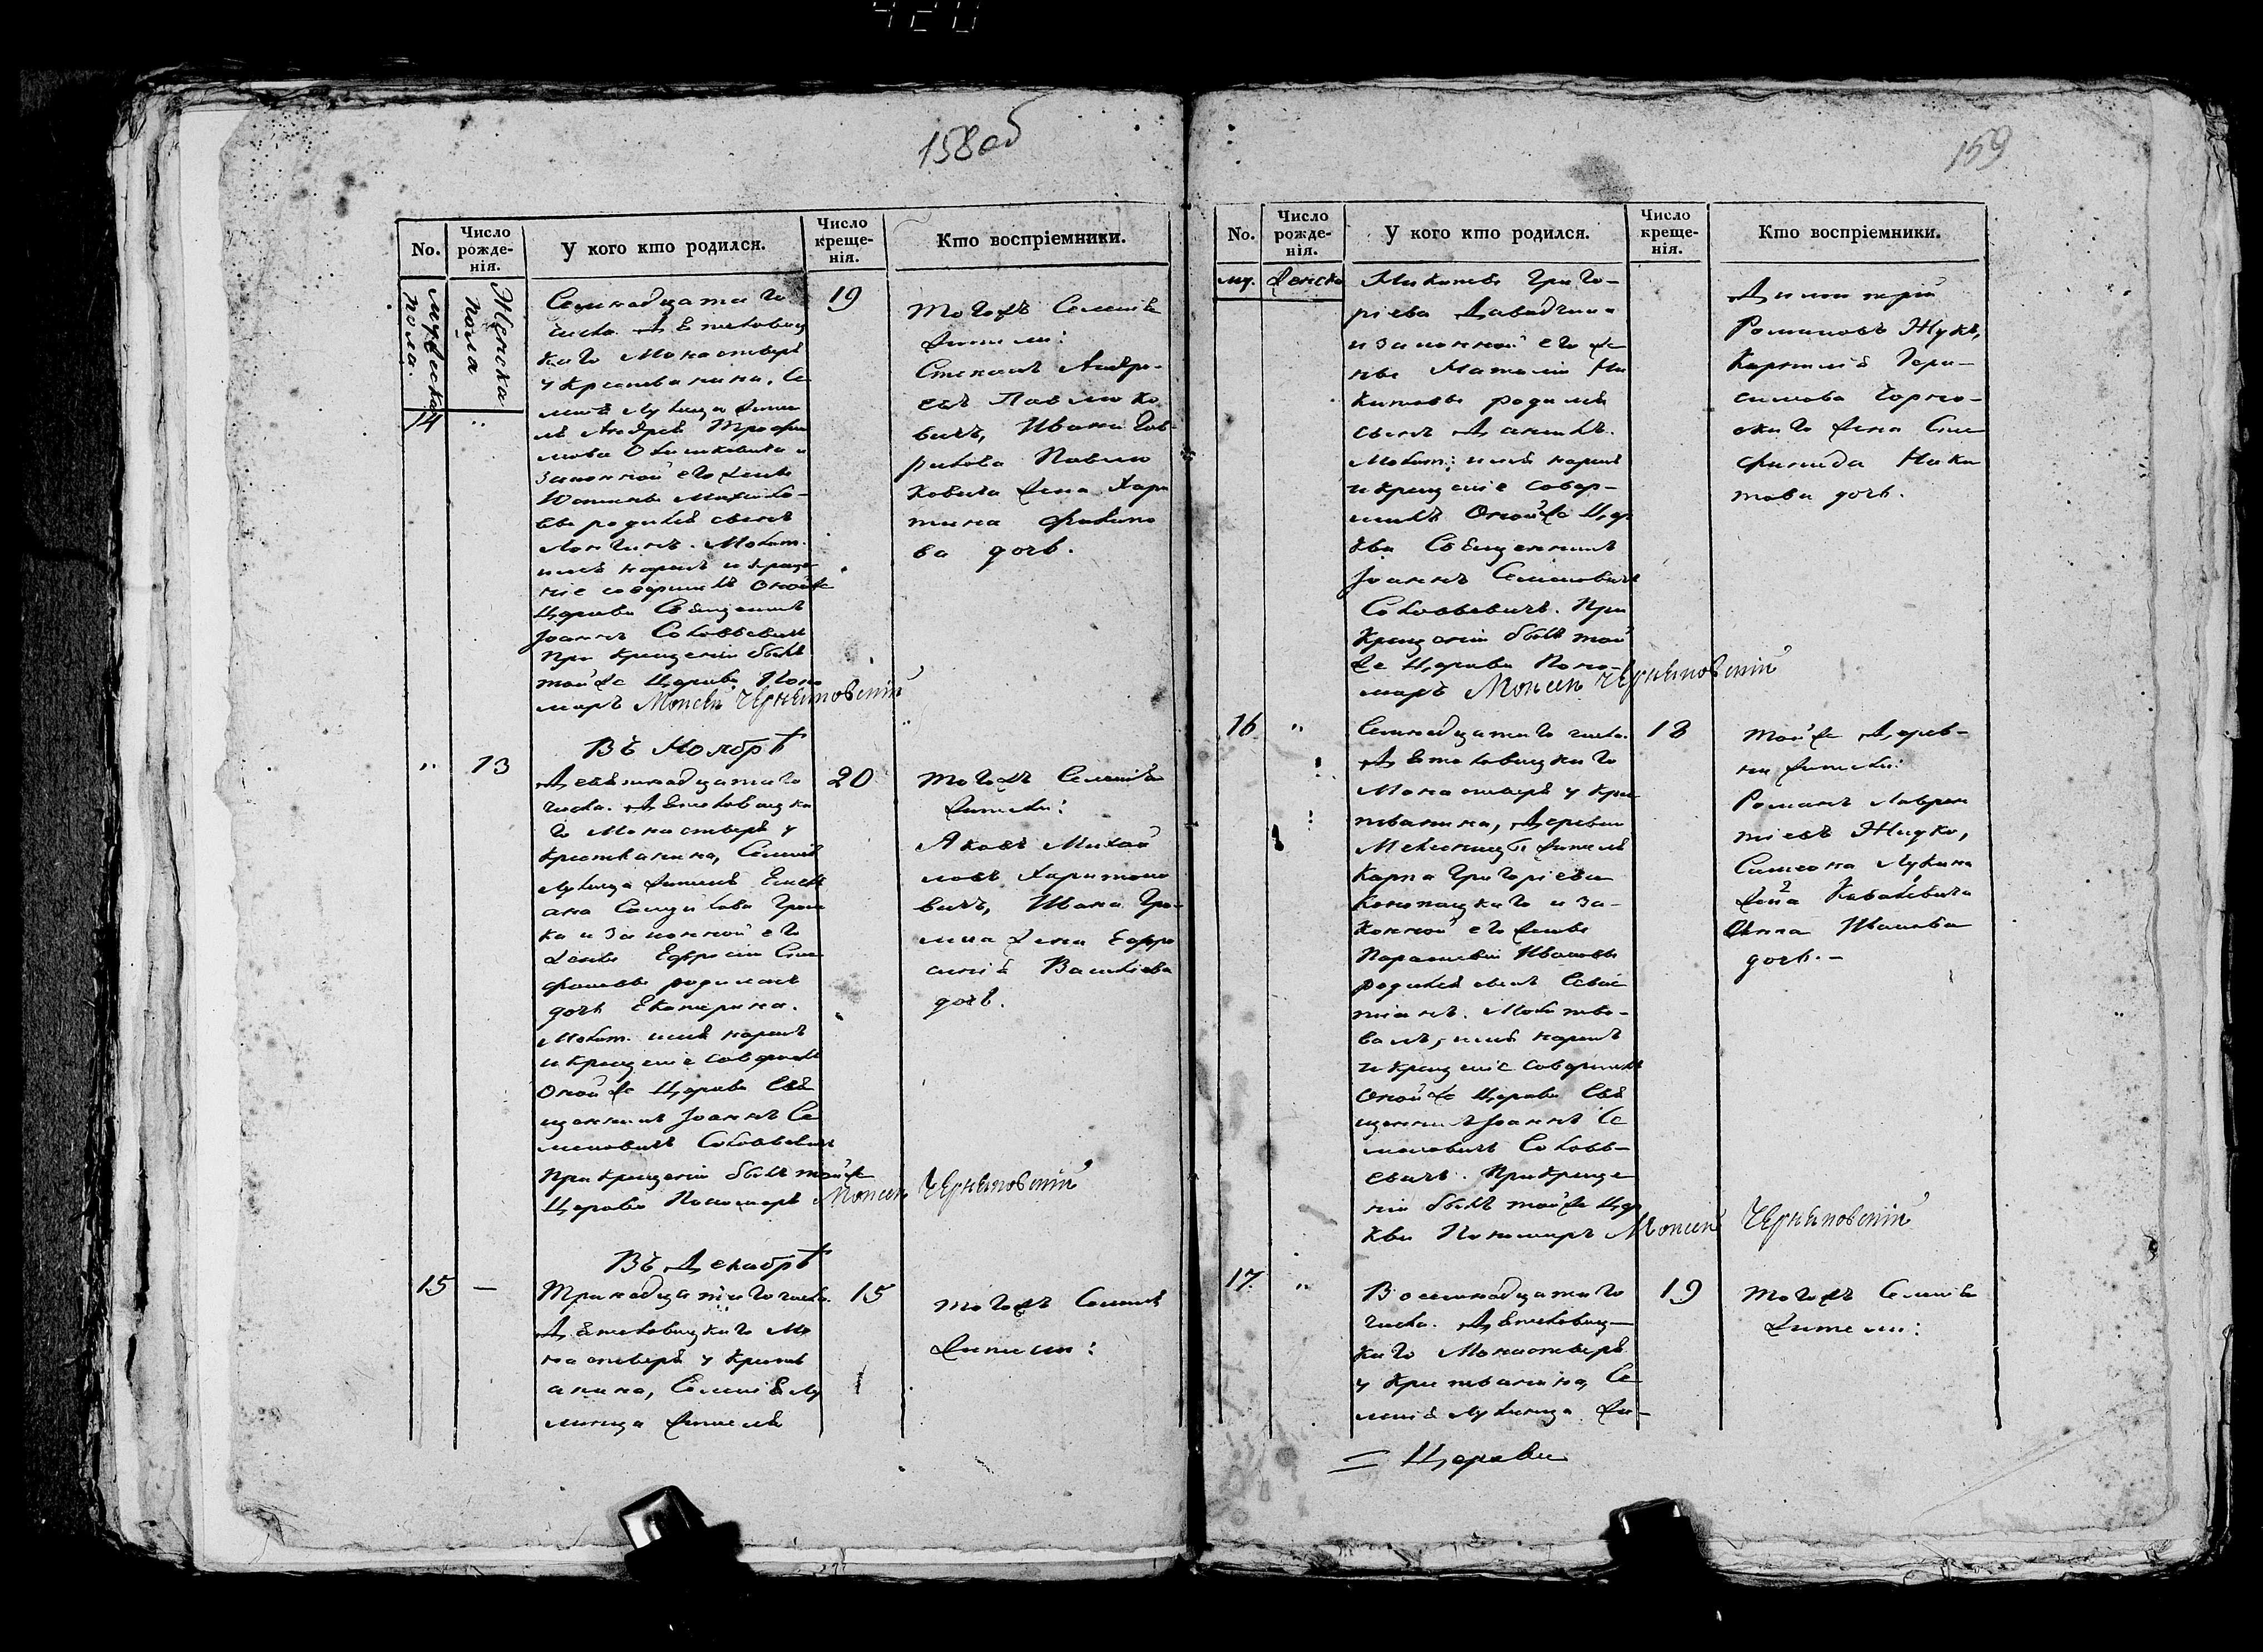 420
158об
No.
Число рожде-нія.
У кого кто родился.
Число креще-нія.
Кто воспріемники.
Мужеска пола.
Женска пола
14
"
Семнадцатаго
числа. Дятеловиц
каго Монастыря
у Крестьянина, Се
ленія Лулица жите
ля Андрея Трофи
мова и
законной его жены
Михайло-
вы родился сынъ
Лонгинъ. Молит.
имя нарекъ и креще
ніе совершилъ Онойже
Церкви Священникъ
Іоаннъ Соловьевичъ
При Крещеніи былъ
тойже Церкви Поно
марь Моисей
19
Тогожъ Селенія
жители:
Стефанъ Андре-
евъ Павлюко
вичъ, Ивана Гав-
рилова Павлю
ковича жена Хари
тина Филипо
ва дочь.
Въ Ноябрѣ
"
13
Девятнадцатаго
числа. Дятеловицка
го Монастыря у
Крестьянина, Селенія
Лулица жителя Емель
яна Самуилова Гром
ка и законной его
жены Ефросіи Сте
фановы родилась
дочь Екатерина.
Молит. имя нарекъ
и крещеніе совершилъ
Онойже Церкви Свя
щенникъ Іоаннъ Се
меновичъ Соловьевичъ
При крещеніи былъ тойже
Церкви Пономарь Моисей
20
Тогожъ Селенія
жители:
Яковъ Михай
ловъ Харитоно
вичъ, Ивана Гро-
мыка жена Ефро
синія Васильева
дочь.
Въ Декабрѣ
15
—
Тринадцатаго числа.
Дятеловицкаго Мо
настыря у Кресть
янина, Селенія Лу
лища жителя
15
Тогожъ Селенія
жители:
159
No.
Число рожде-нія.
У кого кто родился.
Число креще-нія.
Кто воспріемники.
му.
женска
Никиты Григо-
ріева
и законной его же
ны Наталіи Ни
китовы родился
сынъ Даніилъ.
Молит.; имя нарекъ
и Крещеніе совер-
шилъ Онойже Цер
кви Священникъ
Іоаннъ Семеновичъ
Соловьевичъ. При
Крещеніи былъ той
же Церкви Поно-
марь Моисей
Димитрій
Романовъ Жукъ,
Корнилія Гера-
симова
жена Сте
фанида Ники
това дочь.
16
"
Семнадцатаго числа.
Дятеловицкаго
Монастыря у Крес
тьянина, Деревни
жителя
Карпа Григоріева
и за-
конной его жены
Параскевіи Ивановы
родился сынъ Севас
тіанъ. Молитво-
валъ, имя нарекъ
и крещеніе совершилъ
Онойже Церкви Свя
щенникъ Іоаннъ Се
меновичъ Соловь-
евичъ. При креще
ніи былъ тойже Цер
кви Пономарь Моисей
18
Тойже Дерев-
ни жители:
Романъ Лаврен
тіевъ Жидко,
Симеона Лукина
Ковалевича
Анна Иванова
дочь.-
17.
"
Восемнадцатаго
числа. Дятеловиц-
каго Монастыря
у Крестьянина, Се
ленія Лулища жи-
19
Тогожъ Селенія
жители:
= Церкви